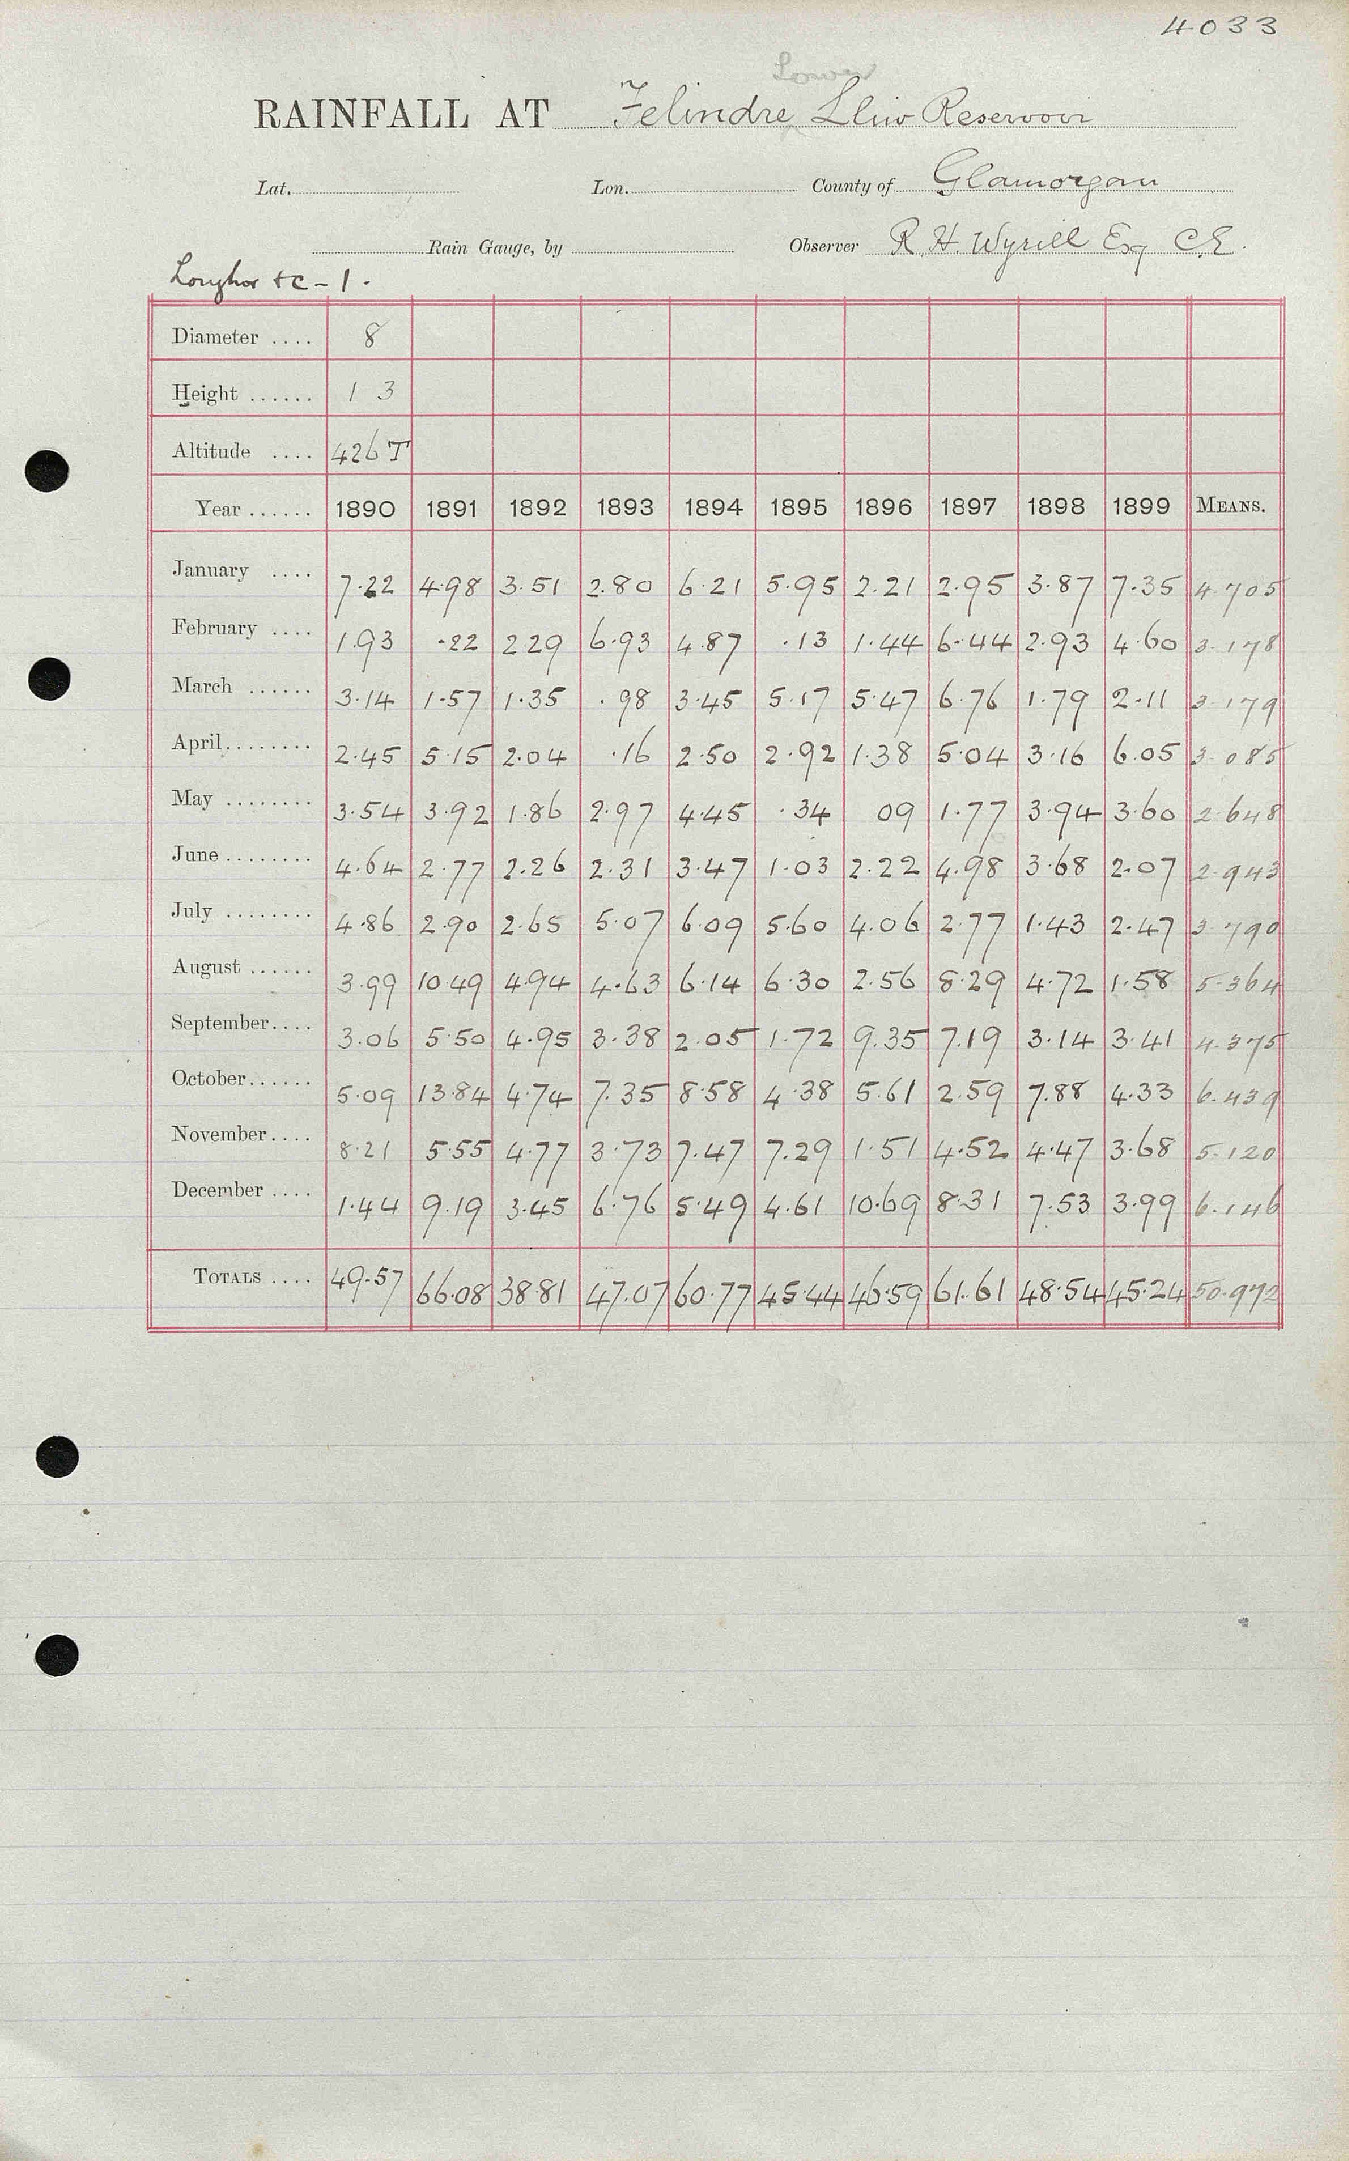 4033
Lower
RAINFALL AT Felindre Lliw Reservoir
Lat. Lon. County of Glamorgan
Rain Gauge, by Observer R. H. Wyrill Esq C.E.
Loughor &c - 1.
Diameter .... 8
Height ...... 1 3
Altitude .... 426 T
Year ...... 1890 1891 1892 1893 1894 1895 1896 1897 1898 1899 MEANS.
January .... 7.22 4.98 3.51 2.80 6.21 5.95 2.21 2.95 3.87 7.35 4.705
February .... 1.93 .22 2 29 6.93 4.87 .13 1.44 6.44 2.93 4.60 3.178
March ...... 3.14 1.57 1.35 .98 3.45 5.17 5.47 6.76 1.79 2.11 3.179
April ........ 2.45 5.15 2.04 .16 2.50 2.92 1.38 5.04 3.16 6.05 3.085
May ........ 3.54 3.92 1.86 2.97 4.45 .34 09 1.77 3.94 3.60 2.648
June ........ 4.64 2.77 2.26 2.31 3.47 1.03 2.22 4.98 3.68 2.07 2.943
July ........ 4.86 2.90 2.65 5.07 6.09 5.60 4.06 2.77 1.43 2.47 3.790
August ...... 3.99 10 49 4.94 4.63 6.14 6.30 2.56 8.29 4.72 1.58 5.364
September .... 3.06 5.50 4.95 3.38 2.05 1.72 9.35 7.19 3.14 3.41 4.375
October ...... 5.09 13.84 4.74 7.35 8.58 4.38 5.61 2.59 7.88 4.33 6.439
November .... 8.21 5.55 4.77 3.73 7.47 7.29 1.51 4.52 4.47 3.68 5.120
December .... 1.44 9.19 3.45 6.76 5.49 4.61 10.69 8.31 7.53 3.99 6.146
TOTALS .... 49.57 66.08 38.81 47.07 60.77 45.44 46.59 61.61 48.54 45.24 50.972